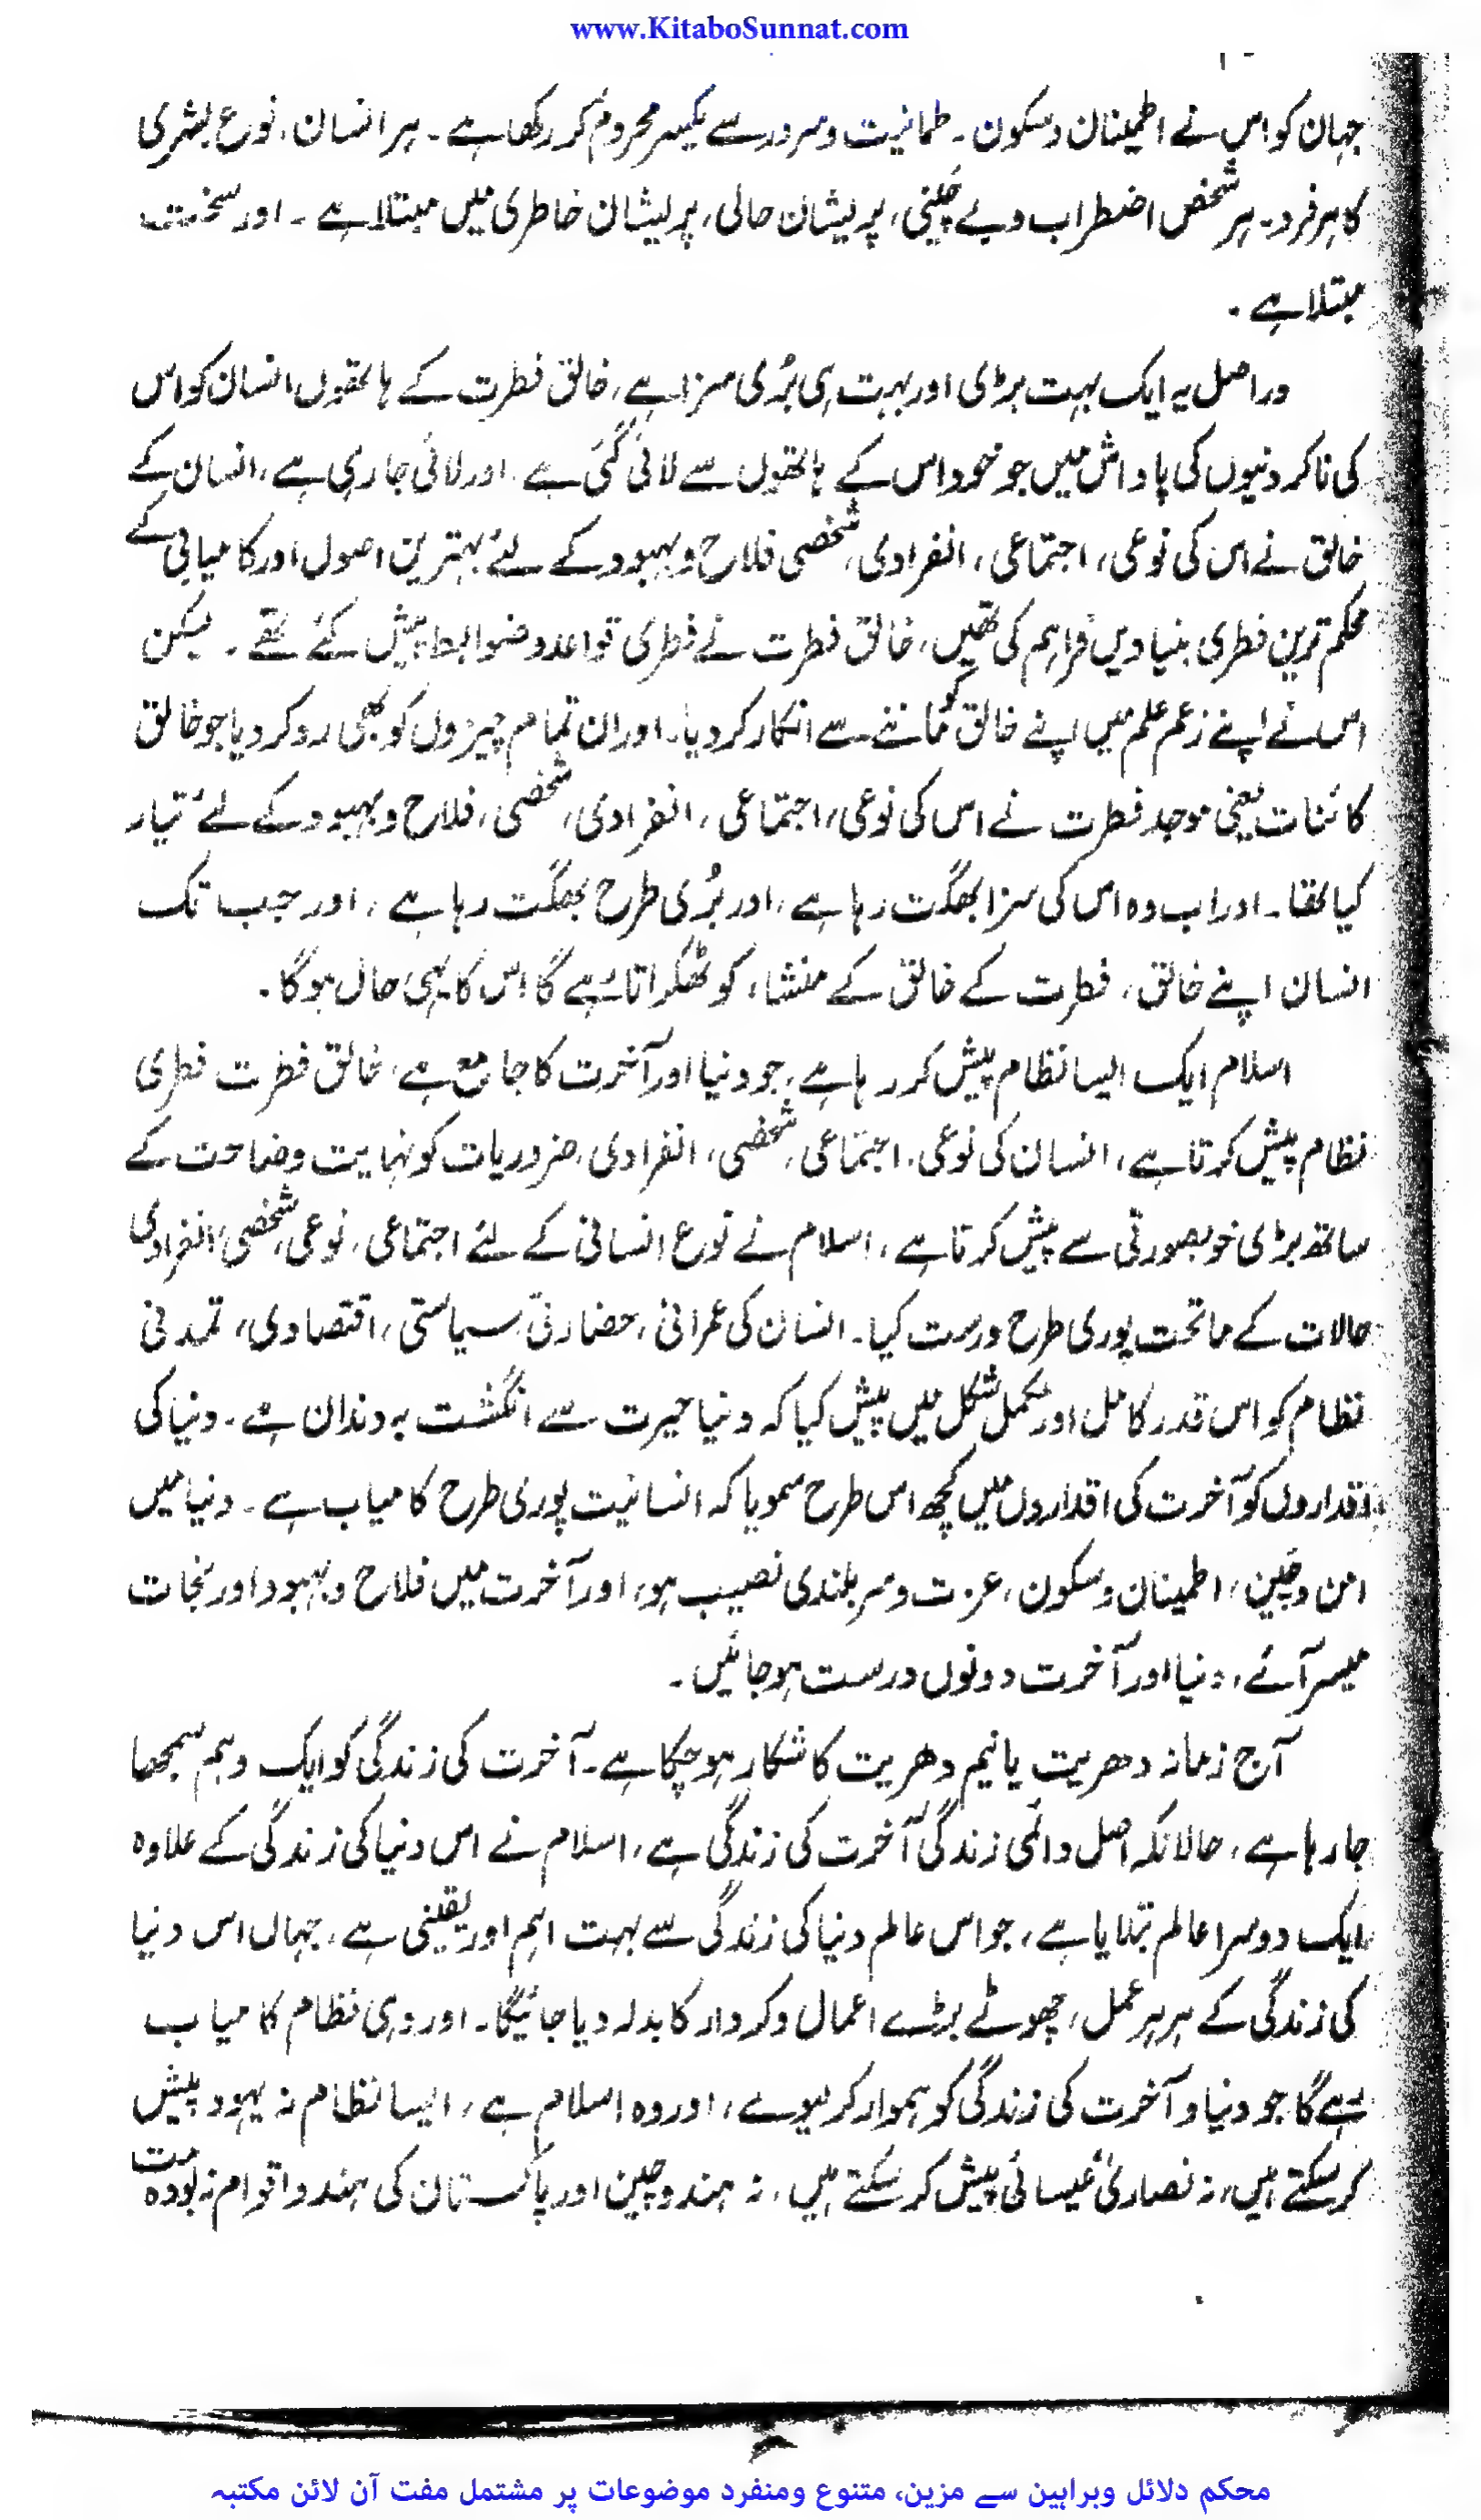 www.KitaboSunnat.com
جہان کو اس نے اطمینان وسکون ۔ طمانیت وسرور سے یکسر محروم کر رکھا ہے ۔ ہر انسان ، نوع بشری
کا ہر فرد ۔ ہر شخص اضطراب و بے چینی ، پریشان حالی ، پریشان خاطری میں مبتلا ہے ۔ اور سخت
مبتلا ہے ۔
دراصل یہ ایک بہت بڑی اور بہت ہی بُری سزا ہے ، خالق فطرت کے ہاتھوں انسان کو اس
کی ناکردنیوں کی پاداش میں جو خود اس کے ہاتھوں سے لائی گئی ہے ، اور لائی جا رہی ہے ، انسان کے
خالق نے اس کی نوعی ، اجتماعی ، انفرادی ، شخصی فلاح وبہبود کے لئے بہترین اصول اور کامیابی کے
محکم ترین فطری بنیادیں فراہم کی تھیں ، خالق فطرت نے فطری قواعد وضوابط پیش کئے تھے ۔ لیکن
اس نے اپنے زعم علم میں اپنے خالق کو ماننے سے انکار کر دیا ۔ اور ان تمام چیزوں کو بھی رد کر دیا جو خالق
کائنات یعنی موجد فطرت نے اس کی نوعی ، اجتماعی ، انفرادی ، شخصی ، فلاح وبہبود کے لئے تیار
کیا تھا ۔ اور اب وہ اس کی سزا بھگت رہا ہے ، اور بُری طرح بھگت رہا ہے ، اور جب تک
انسان اپنے خالق ، فطرت کے خالق کے منشاء کو ٹھکراتا رہے گا اس کا یہی حال ہوگا ۔
اسلام ایک ایسا نظام پیش کر رہا ہے ، جو دنیا اور آخرت کا جامع ہے ، خالق فطرت فطری
نظام پیش کرتا ہے ، انسان کی نوعی ، اجتماعی ، شخصی ، انفرادی ، ضروریات کو نہایت وضاحت کے
ساتھ بڑی خوبصورتی سے پیش کرتا ہے ، اسلام نے نوع انسانی کے لئے اجتماعی ، نوعی ، شخصی ، انفرادی
حالات کے ماتحت پوری طرح درست کیا ۔ انسان کی عمرانی ، حضارتی ، سیاستی ، اقتصادی ، تمدنی
نظام کو اس قدر کامل اور مکمل شکل میں پیش کیا کہ دنیا حیرت سے انگشت بہ دندان ہے ۔ دنیا کی
اقداروں کو آخرت کی اقداروں میں کچھ اس طرح سمویا کہ انسانیت پوری طرح کامیاب ہے ۔ دنیا میں
امن وچین ، اطمینان وسکون ، عزت وسربلندی نصیب ہو ، اور آخرت میں فلاح وبہبود اور نجات
میسر آئے ، دنیا اور آخرت دونوں درست ہو جائیں ۔
آج زمانہ دھریت یا نیم دھریت کا شکار ہو چکا ہے ۔ آخرت کی زندگی کو ایک وہم سمجھا
جا رہا ہے ، حالانکہ اصل دائمی زندگی آخرت کی زندگی ہے ، اسلام نے اس دنیا کی زندگی کے علاوہ
ایک دوسرا عالم بتلایا ہے ، جو اس عالم دنیا کی زندگی سے بہت اہم اور یقینی ہے ، جہاں اس دنیا
کی زندگی کے ہر ہر عمل ، چھوٹے بڑے اعمال وکردار کا بدلہ دیا جائیگا ۔ اور وہی نظام کامیاب
رہے گا جو دنیا و آخرت کی زندگی کو ہموار کر لیوے ، اور وہ اسلام ہے ، ایسا نظام نہ یہود پیش
کر سکتے ہیں ، نہ نصاریٰ عیسائی پیش کر سکتے ہیں ، نہ ہند وچین اور پاکستان کی ہندو اقوام نہ بودھ مت
محکم دلائل وبراہین سے مزین، متنوع ومنفرد موضوعات پر مشتمل مفت آن لائن مکتبہ